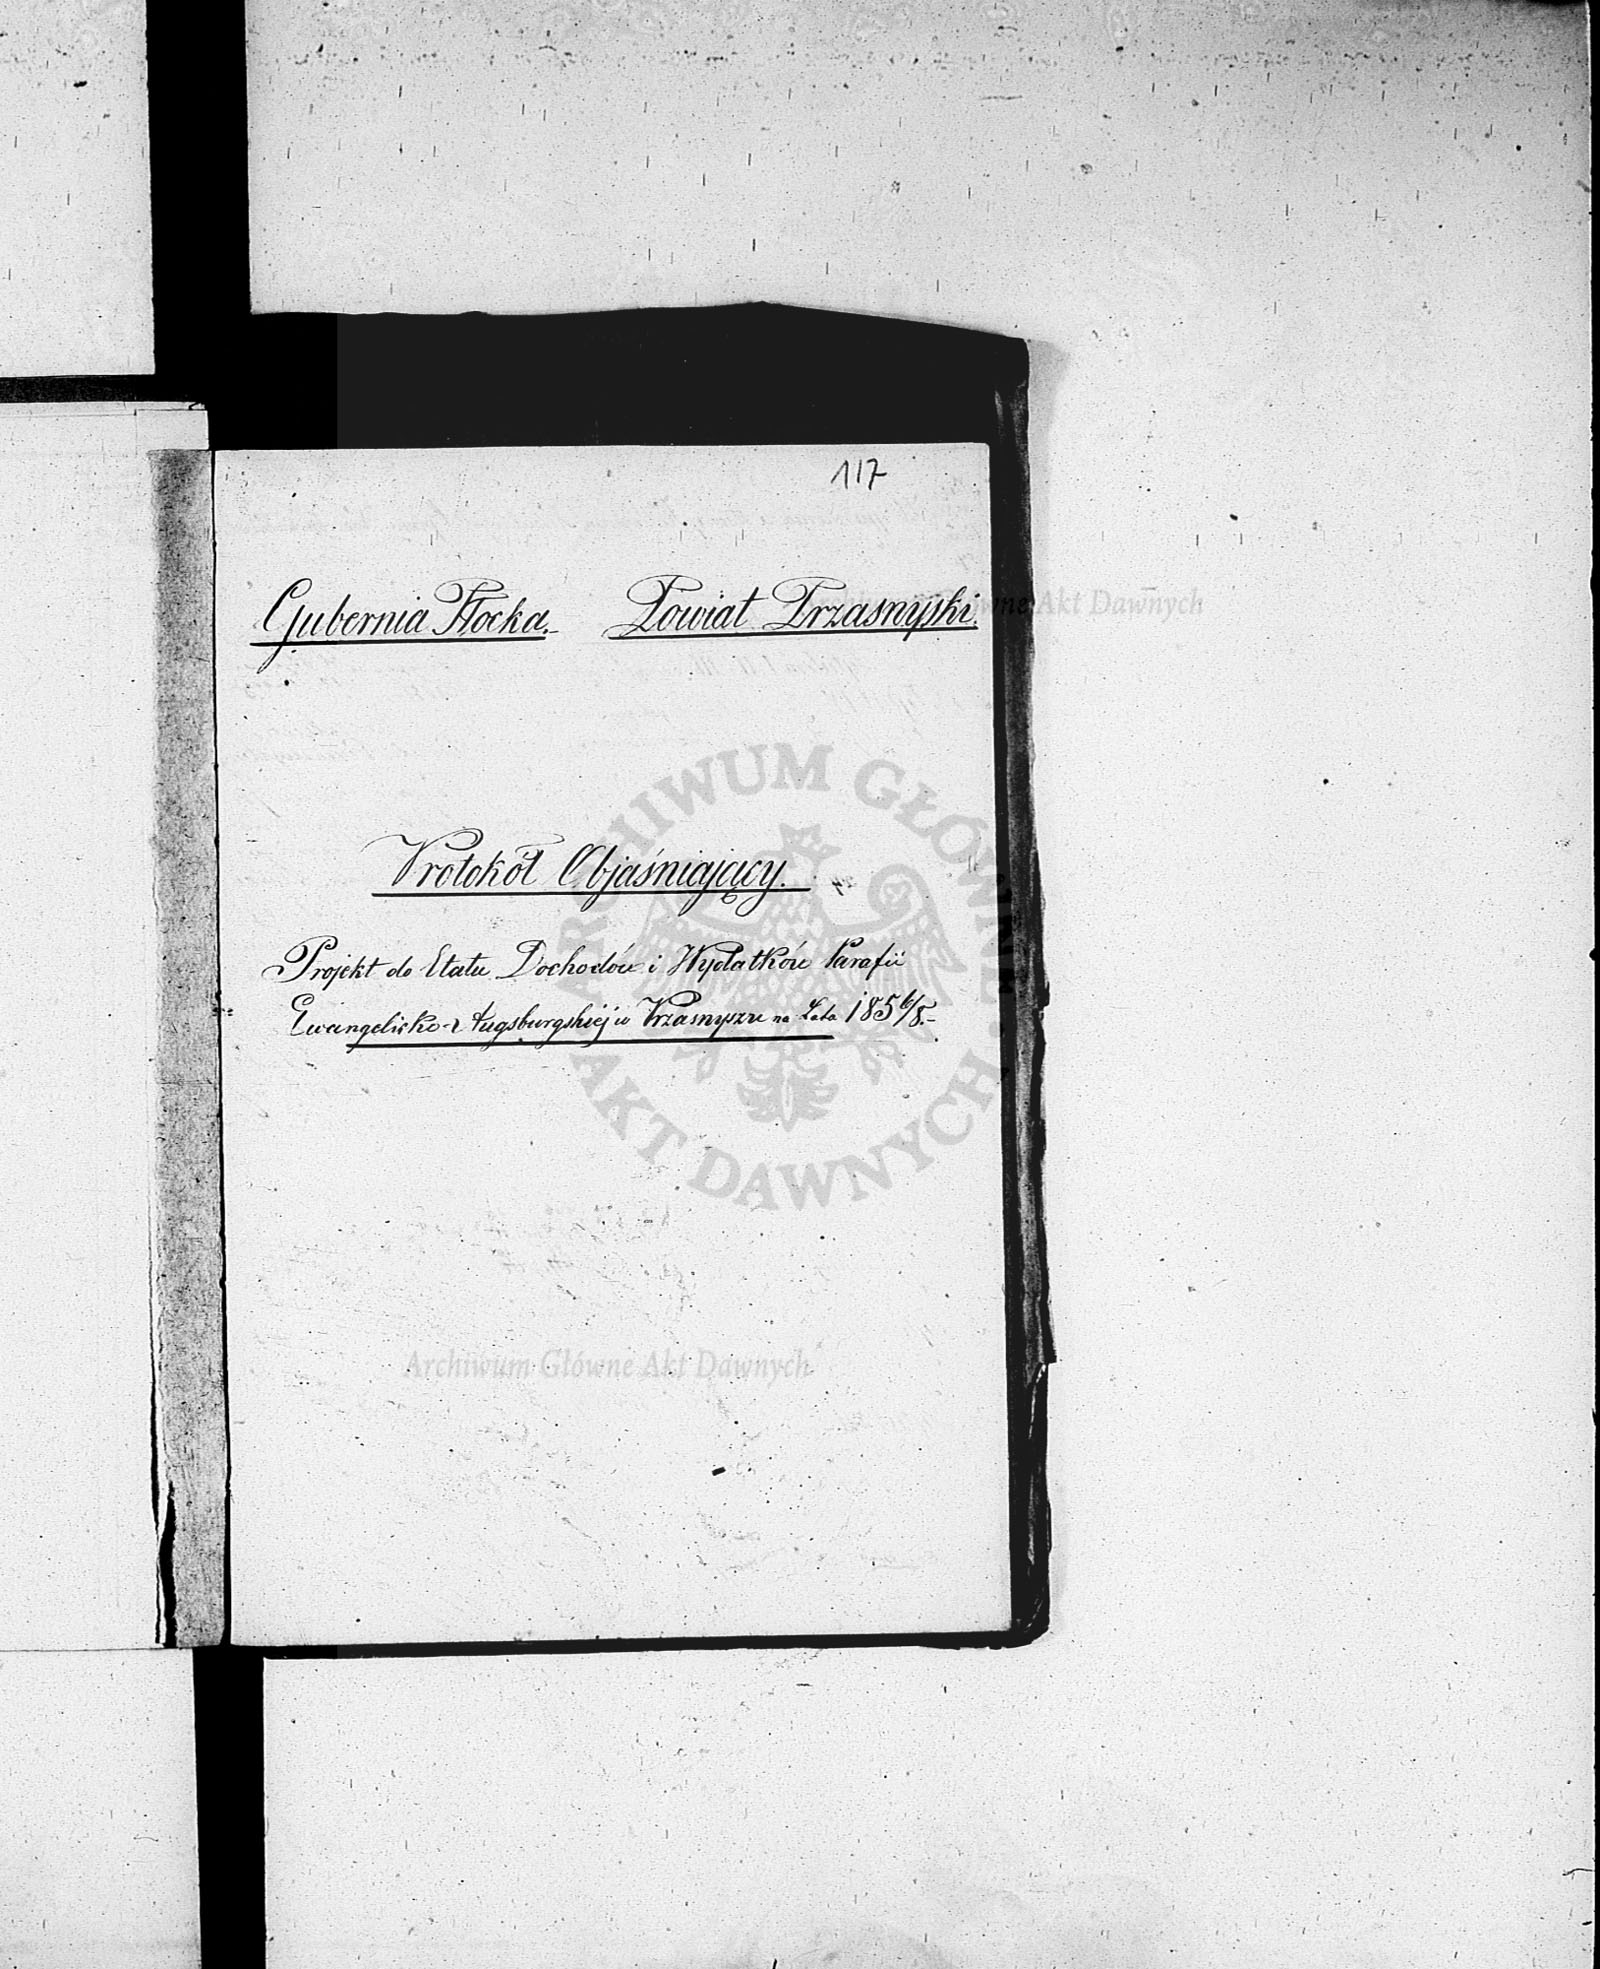 117
Gubernia Płocka. Powiat Przasnyski.
Protokół Objaśniający.
Projekt do Etatu Dochodów i Wydatków Parafii
Ewangelicko-Augsburgskiej w Przasnyszu na Lata 1856/8.
ARCHIWUM GŁÓWNE AKT DAWNYCH
Archiwum Główne Akt Dawnych